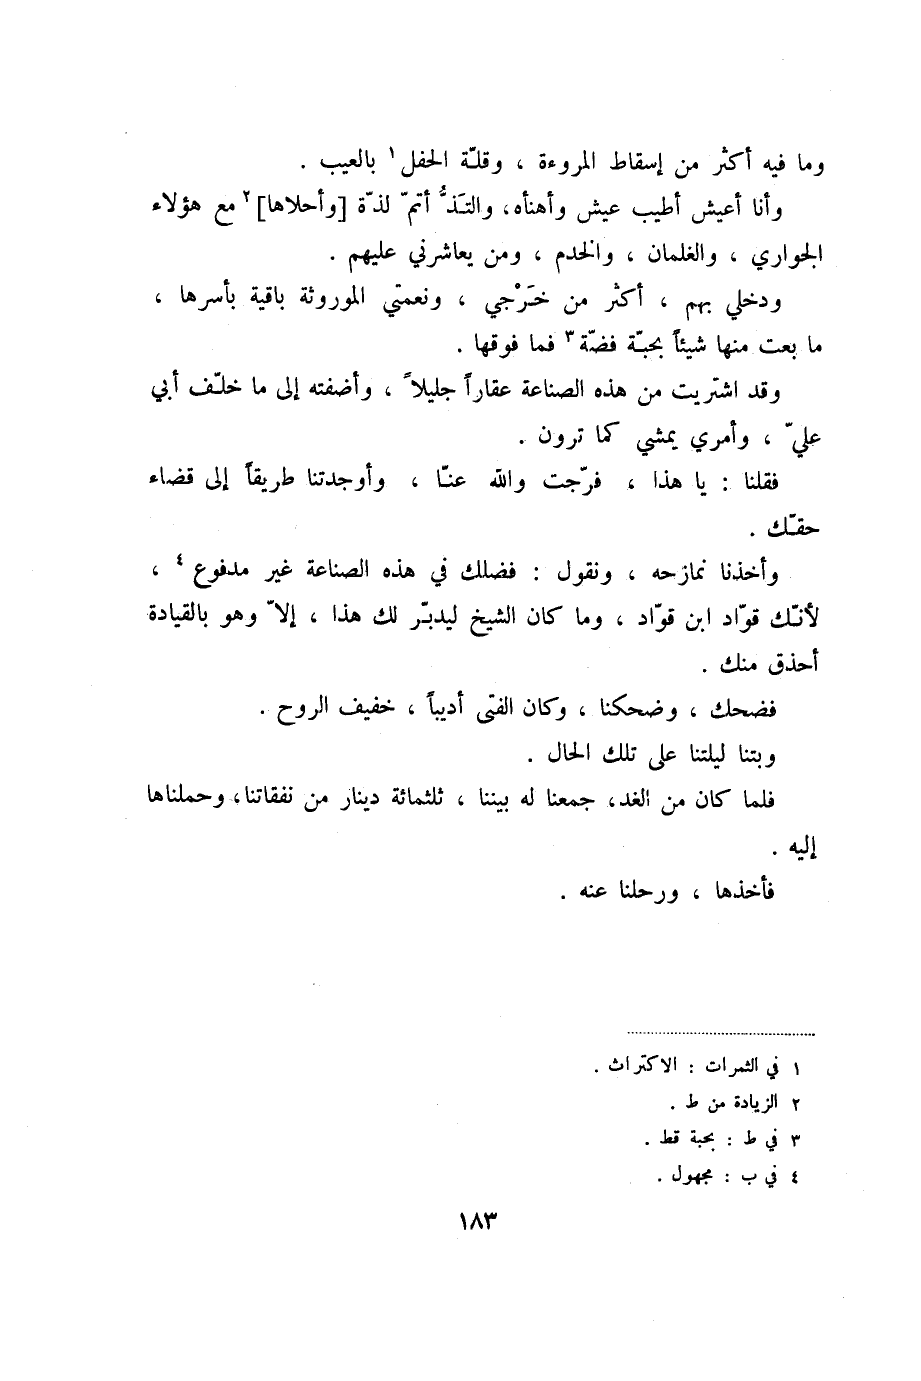 وما فيه أكثر من إسقاط المروءة ، وقلّة الحفل ١ بالعيب .
وأنا أعيش أطيب عيش وأهنأه، والتَذُّ أتمّ لذّة [وأحلاها] ٢ مع هؤلاء
الجواري ، والغلمان ، والخدم ، ومن يعاشرني عليهم .
ودخلي بهم ، أكثر من خَرْجي ، ونعمتي الموروثة باقية بأسرها ،
ما بعت منها شيئاً بحبّة فضّة ٣ فما فوقها .
وقد اشتريت من هذه الصناعة عقاراً جليلاً ، وأضفته إلى ما خلّف أبي
عليّ ، وأمري يمشي كما ترون .
فقلنا : يا هذا ، فرّجت والله عنّا ، وأوجدتنا طريقاً إلى قضاء
حقّك .
وأخذنا نمازحه ، ونقول : فضلك في هذه الصناعة غير مدفوع ٤ ،
لأنّك قوّاد ابن قوّاد ، وما كان الشيخ ليدبّر لك هذا ، إلاّ وهو بالقيادة
أحذق منك .
فضحك ، وضحكنا ، وكان الفتى أديباً ، خفيف الروح .
وبتنا ليلتنا على تلك الحال .
فلما كان من الغد، جمعنا له بيننا ، ثلثمائة دينار من نفقاتنا، وحملناها
إليه .
فأخذها ، ورحلنا عنه .
١ في الثمرات : الاكتراث .
٢ الزيادة من ط .
٣ في ط : بحبة قط .
٤ في ب : مجهول .
١٨٣